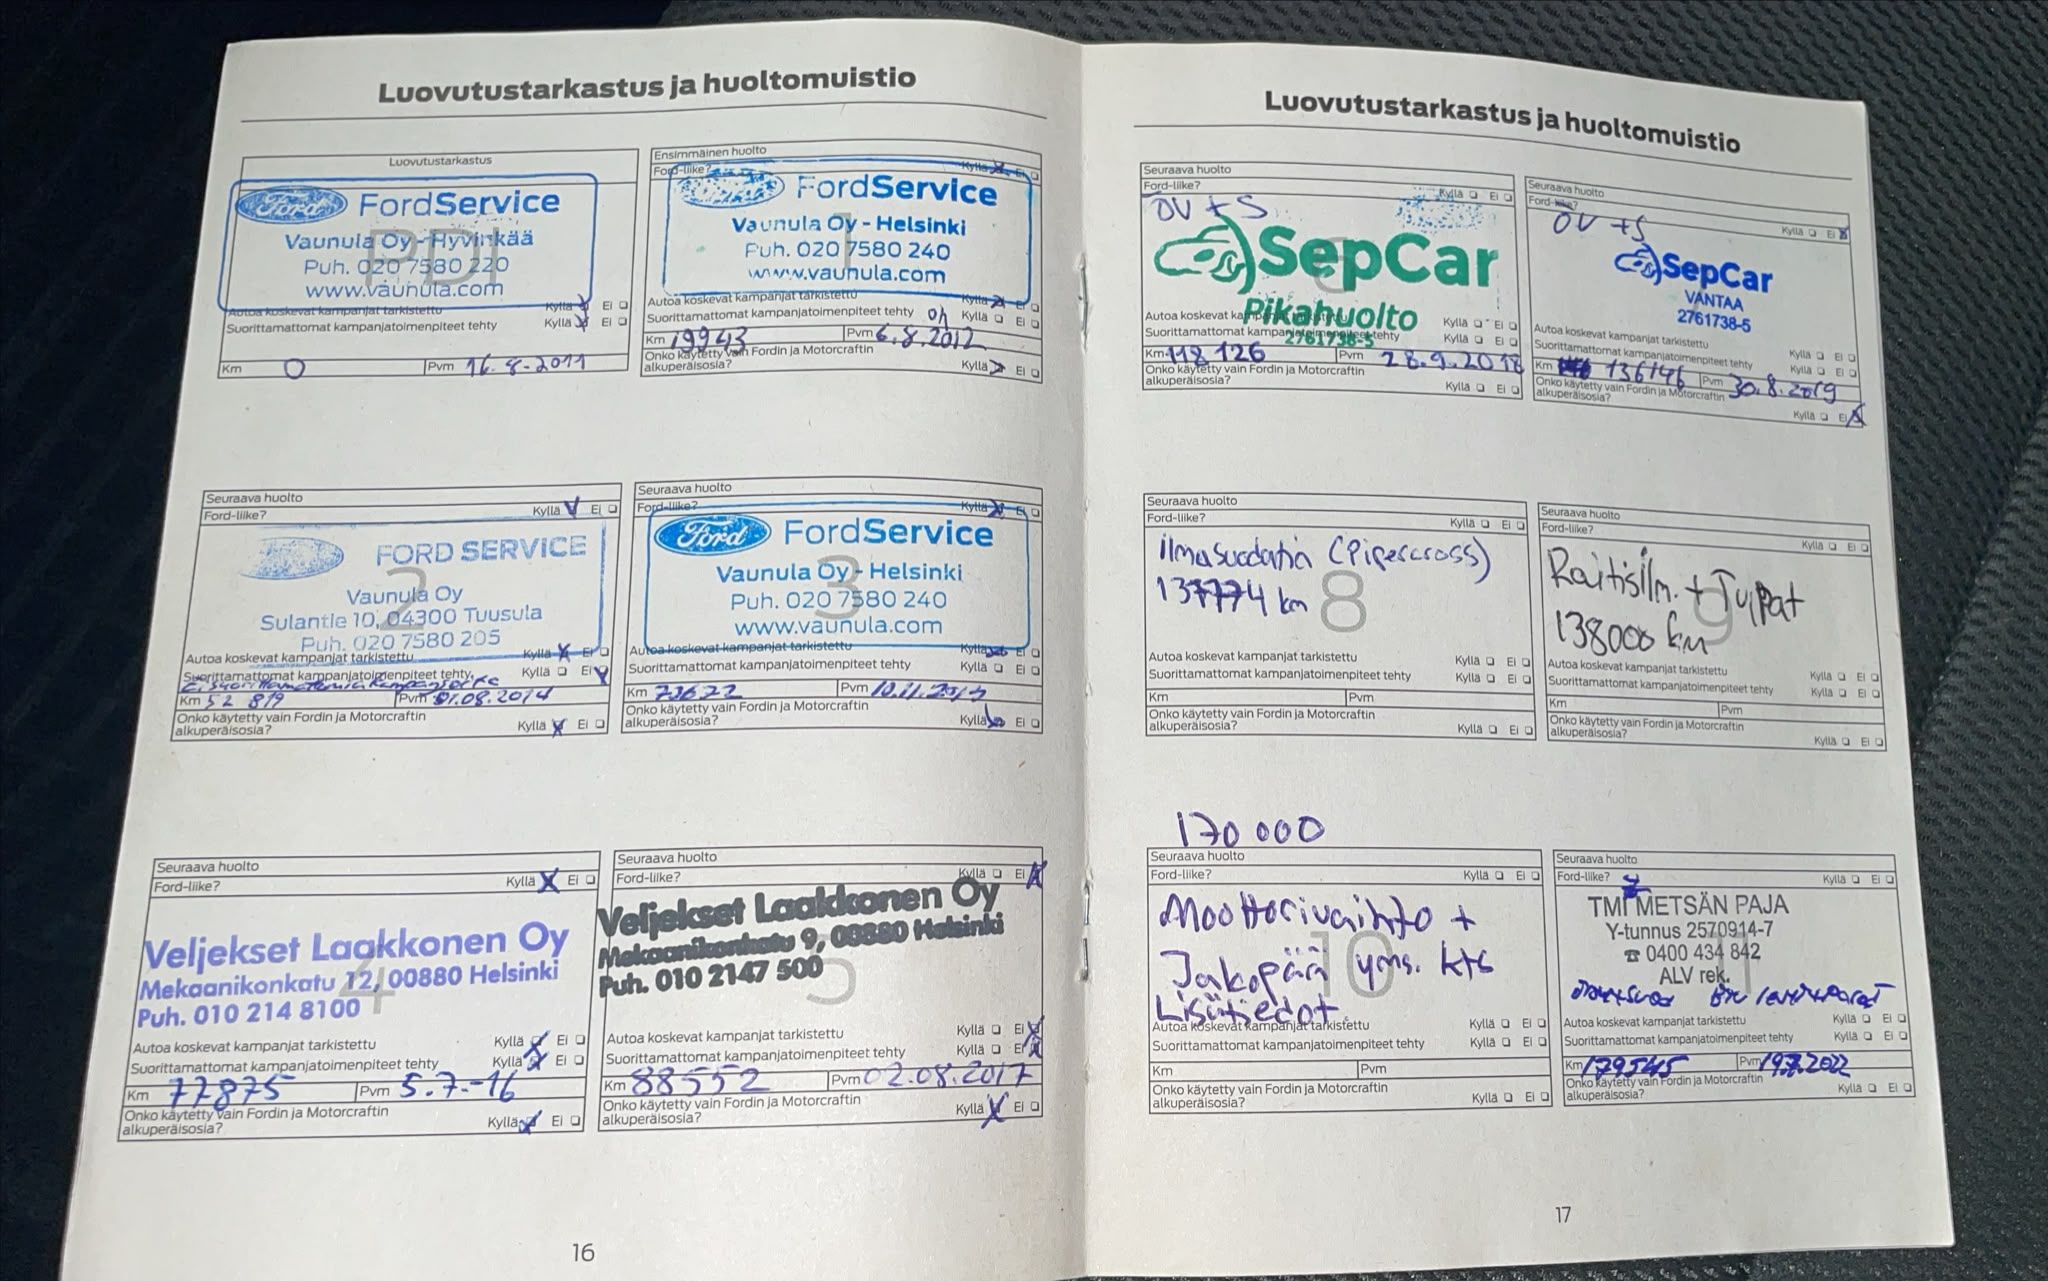 Luovutustarkastus ja huoltomuistio
Luovutustarkastus
Ford FordService
Vaunula Oy - Hyvinkää
PDI
Puh. 020 7580 220
www.vaunula.com
Autoa koskevat kampanjat tarkistettu Kyllä Ei
Suorittamattomat kampanjatoimenpiteet tehty Kyllä Ei
Km 0 Pvm 16.8-2011
Ensimmäinen huolto
Ford-liike? Kyllä Ei
FordService
1
Vaunula Oy - Helsinki
Puh. 020 7580 240
www.vaunula.com
Autoa koskevat kampanjat tarkistettu Kyllä Ei
Suorittamattomat kampanjatoimenpiteet tehty Kyllä Ei
Km 19943 Pvm 6.8.2012
Onko käytetty vain Fordin ja Motorcraftin
alkuperäisosia? Kyllä Ei
Seuraava huolto
Ford-liike? Kyllä Ei
FORD SERVICE
2
Vaunula Oy
Sulantie 10, 04300 Tuusula
Puh. 020 7580 205
Autoa koskevat kampanjat tarkistettu Kyllä Ei
Suorittamattomat kampanjatoimenpiteet tehty Kyllä Ei
Km 52 819 Pvm 01.08.2014
Onko käytetty vain Fordin ja Motorcraftin
alkuperäisosia? Kyllä Ei
Seuraava huolto
Ford-liike? Kyllä Ei
Ford FordService
3
Vaunula Oy - Helsinki
Puh. 020 7580 240
www.vaunula.com
Autoa koskevat kampanjat tarkistettu Kyllä Ei
Suorittamattomat kampanjatoimenpiteet tehty Kyllä Ei
Km 73622 Pvm
Onko käytetty vain Fordin ja Motorcraftin
alkuperäisosia? Kyllä Ei
Seuraava huolto
Ford-liike? Kyllä Ei
Veljekset Laakkonen Oy
Mekaanikonkatu 12, 00880 Helsinki
4
Puh. 010 214 8100
Autoa koskevat kampanjat tarkistettu Kyllä Ei
Suorittamattomat kampanjatoimenpiteet tehty Kyllä Ei
Km 77875 Pvm 5.7.-16
Onko käytetty vain Fordin ja Motorcraftin
alkuperäisosia? Kyllä Ei
Seuraava huolto
Ford-liike? Kyllä Ei
Veljekset Laakkonen Oy
Mekaanikonkatu 9, 00880 Helsinki
Puh. 010 2147 500
5
Autoa koskevat kampanjat tarkistettu Kyllä Ei
Suorittamattomat kampanjatoimenpiteet tehty Kyllä Ei
Km 88552 Pvm 02.08.2017
Onko käytetty vain Fordin ja Motorcraftin
alkuperäisosia? Kyllä Ei
16
Luovutustarkastus ja huoltomuistio
Seuraava huolto
Ford-liike? Kyllä Ei
ÖV + S
SepCar
Pikahuolto
2761738-5
Autoa koskevat kampanjat tarkistettu Kyllä Ei
Suorittamattomat kampanjatoimenpiteet tehty Kyllä Ei
Km 118 126 Pvm 28.9.2018
Onko käytetty vain Fordin ja Motorcraftin
alkuperäisosia? Kyllä Ei
Seuraava huolto
Ford-liike? Kyllä Ei
ÖV +S
SepCar
VANTAA
2761738-5
Autoa koskevat kampanjat tarkistettu Kyllä Ei
Suorittamattomat kampanjatoimenpiteet tehty Kyllä Ei
Km 136146 Pvm 30.8.2019
Onko käytetty vain Fordin ja Motorcraftin
alkuperäisosia? Kyllä Ei
Seuraava huolto
Ford-liike? Kyllä Ei
ilmasuodatin (Pipercross)
137774 km
8
Autoa koskevat kampanjat tarkistettu Kyllä Ei
Suorittamattomat kampanjatoimenpiteet tehty Kyllä Ei
Km Pvm
Onko käytetty vain Fordin ja Motorcraftin
alkuperäisosia? Kyllä Ei
Seuraava huolto
Ford-liike? Kyllä Ei
Raitisilm. + Tulpat
138000 km
9
Autoa koskevat kampanjat tarkistettu Kyllä Ei
Suorittamattomat kampanjatoimenpiteet tehty Kyllä Ei
Km Pvm
Onko käytetty vain Fordin ja Motorcraftin
alkuperäisosia? Kyllä Ei
170 000
Seuraava huolto
Ford-liike? Kyllä Ei
Moottorivaihto +
Jakopää yms. kts
10
Lisätiedot
Autoa koskevat kampanjat tarkistettu Kyllä Ei
Suorittamattomat kampanjatoimenpiteet tehty Kyllä Ei
Km Pvm
Onko käytetty vain Fordin ja Motorcraftin
alkuperäisosia? Kyllä Ei
Seuraava huolto
Ford-liike? Kyllä Ei
TMI METSÄN PAJA
Y-tunnus 2570914-7
☎ 0400 434 842
ALV rek.
11
Autoa koskevat kampanjat tarkistettu Kyllä Ei
Suorittamattomat kampanjatoimenpiteet tehty Kyllä Ei
Km 179545 Pvm
Onko käytetty vain Fordin ja Motorcraftin
alkuperäisosia? Kyllä Ei
17